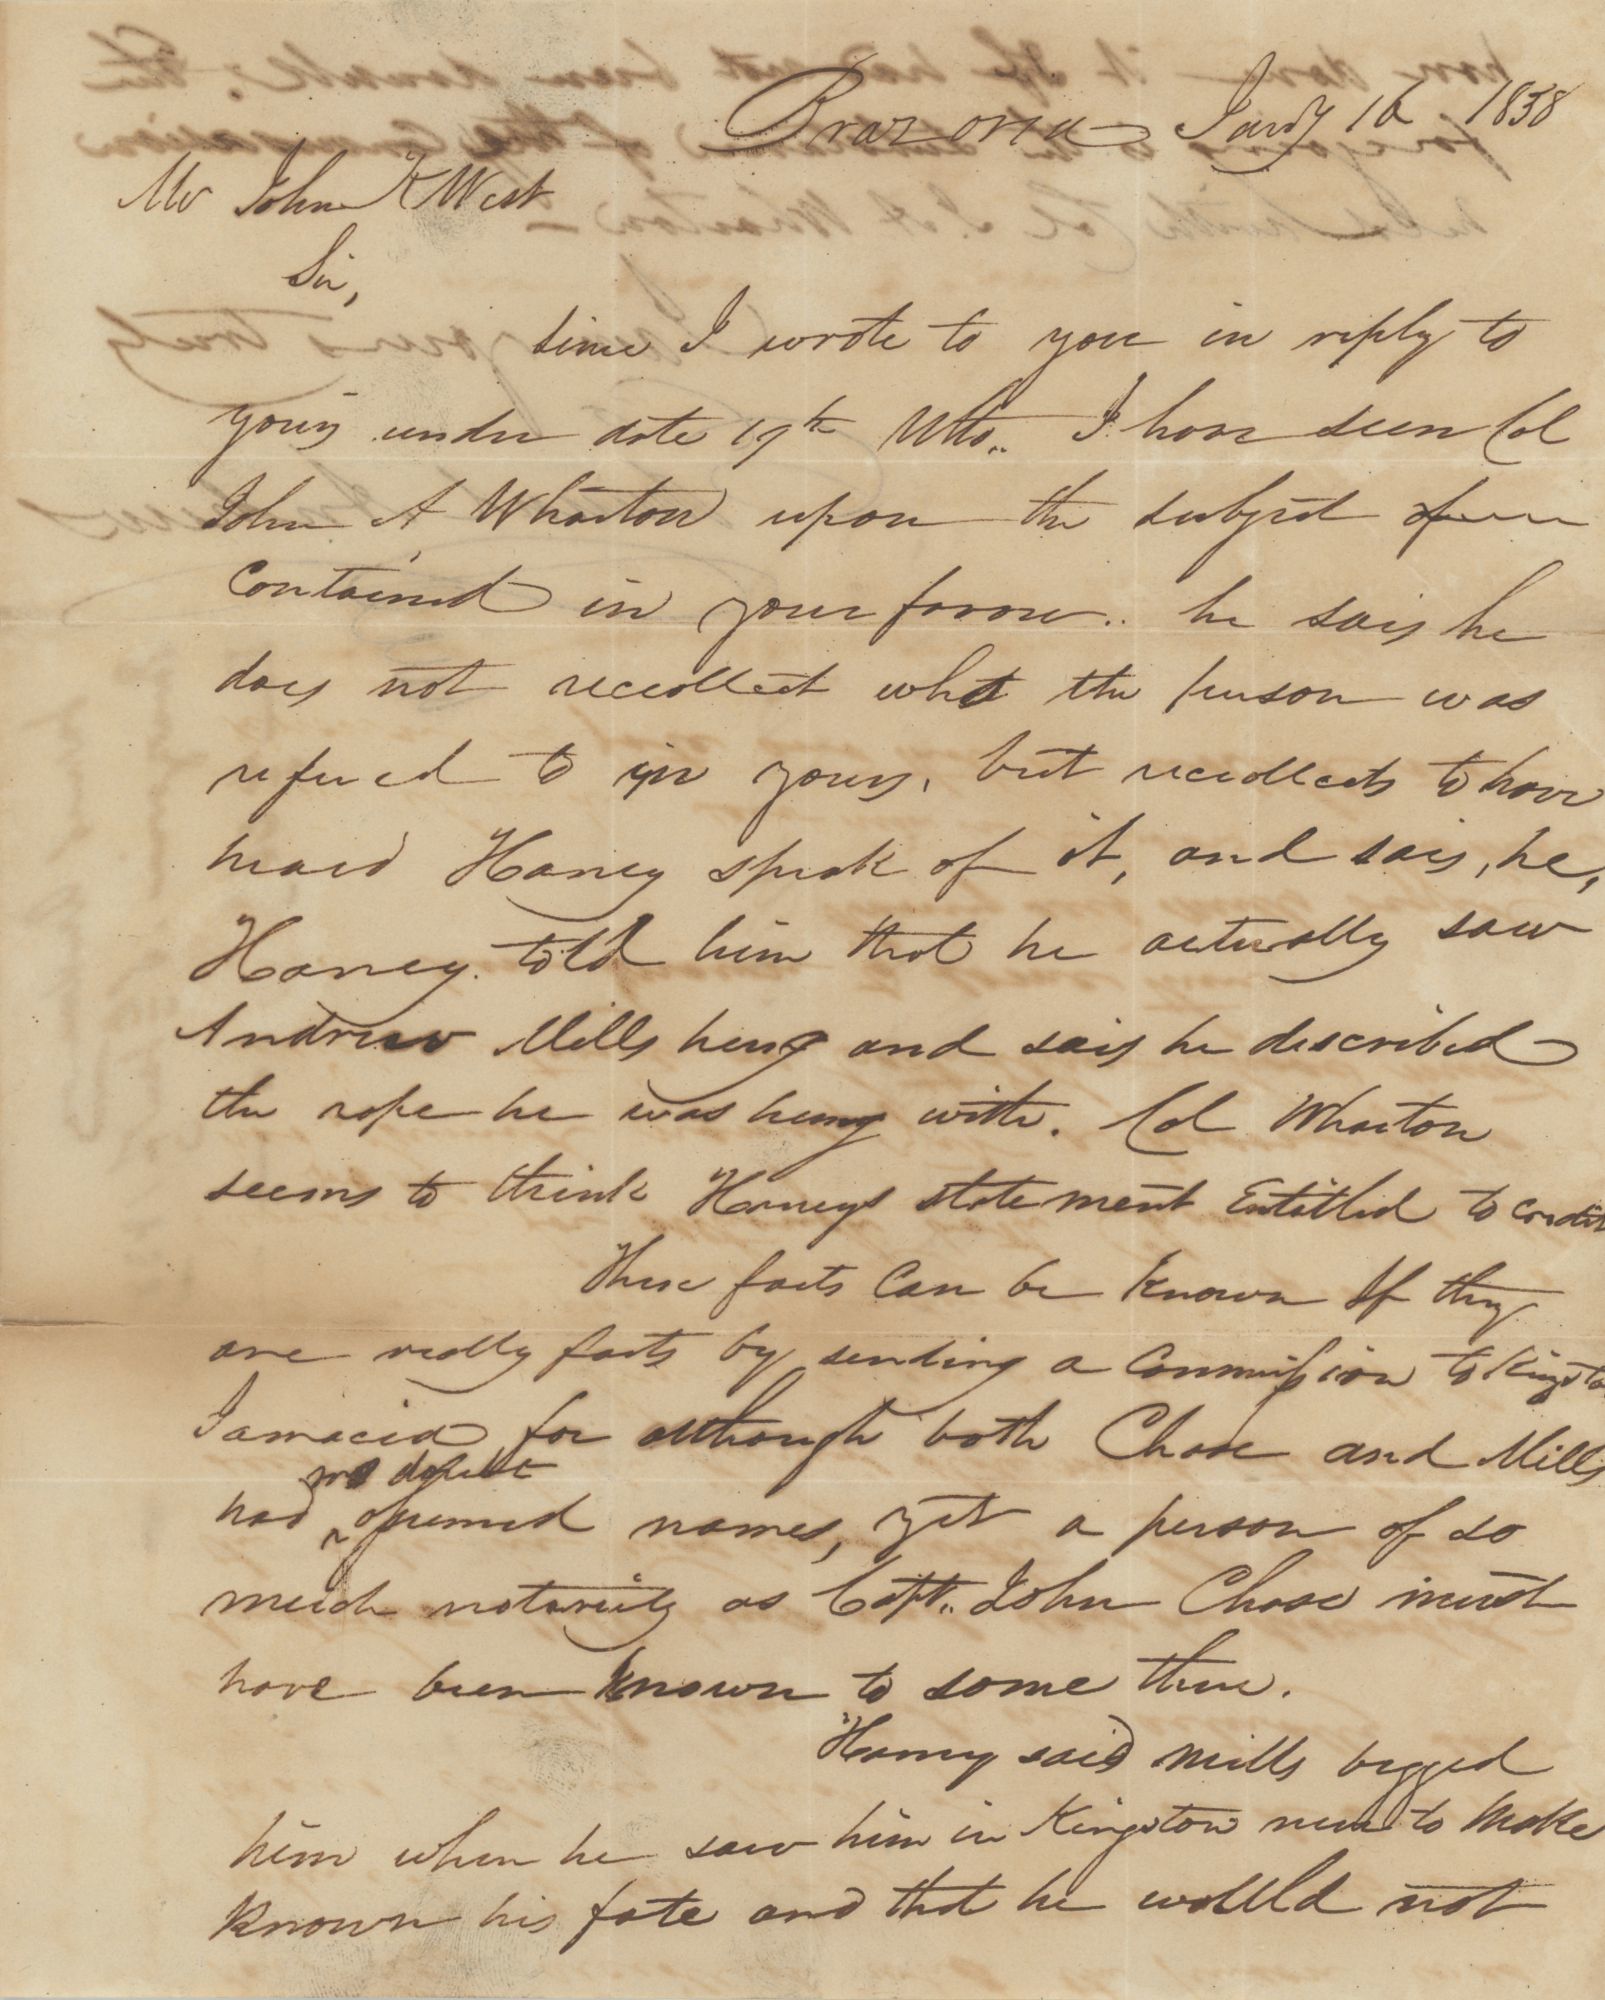 Brazoria Jany 16 1838
Mr John K West
Sir,
since I wrote to you in reply to
yours under date 19th Ulto.. I have seen Col
John A Wharton upon the subject
contained in your favour.. he says he
does not recollect what the person was
refered to in yours, but recollects to have
heard Haney speak of it, and says, he,
Haney told him that he actually saw
Andrew Mills hung and says he described
the rope he was hung with. Col Wharton
seems to think Haneys statement Entitled to credit
These facts can be known If they
are really facts by sending a Commission to Kingston
Jamacia for although both Chase and Mills
no doubt
had assumed names, yet a person of so
much notoriety as Capt.. John Chase must
have been known to some there.
Haney said Mills begged
him when he saw him in Kingston never to make
known his fate and that he would not